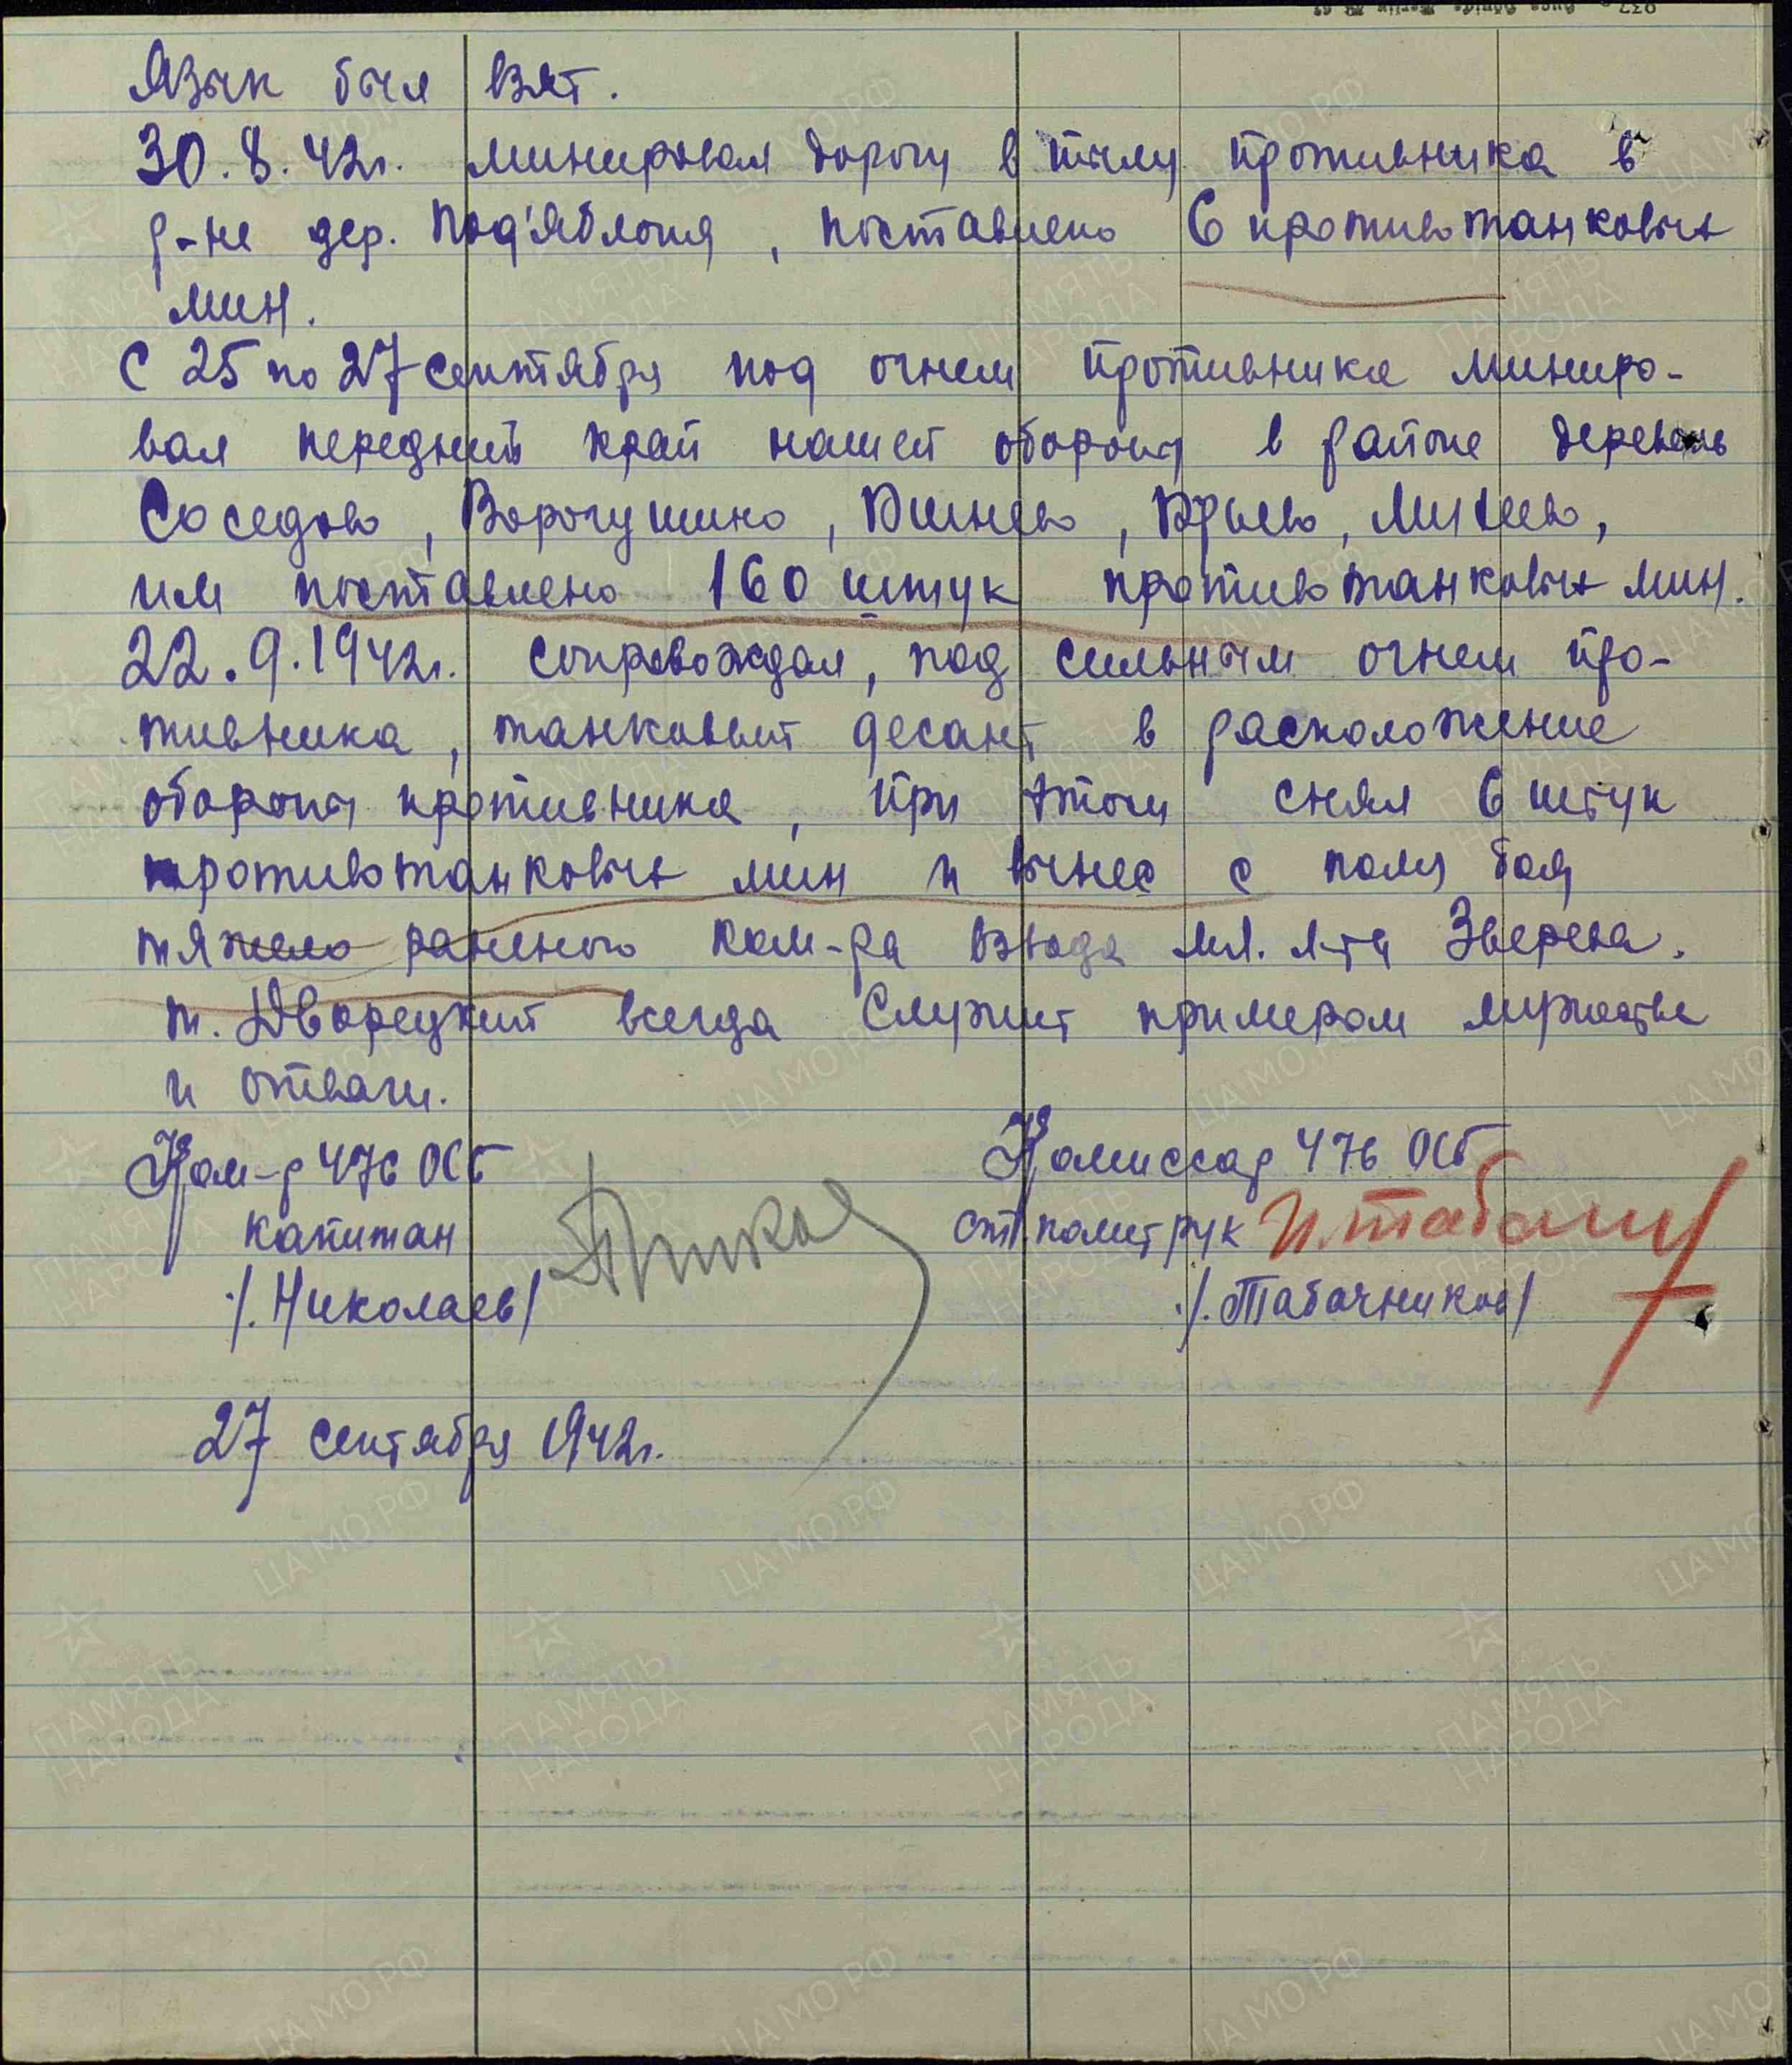 Язык был взят.
30.8.42г. минировал дорогу в тылу противника в
р-не дер. Под'яблоня, поставлено 6 противотанковых
мин.
С 25 по 27 сентября под огнем противника миниро-
вал передний край нашей обороны в районе деревень
Соседово, Ворогушино, Вишнево, Юрьево, Михеево,
им поставлено 160 штук противотанковых мин.
22.9.1942г. сопровождал, под сильным огнем про-
тивника, танковый десант в расположение
обороны противника, при этом снял 6 штук
противотанковых мин и вынес с поля боя
тяжело раненого ком-ра взвода мл. л-та Зверева.
т. Дворецкий всегда служит примером мужества
и отваги.
Ком-р 476 ОСБ
капитан
/.Николаев/
Комиссар 476 ОСБ
ст. политрук
/.Табачников/
27 сентября 1942г.